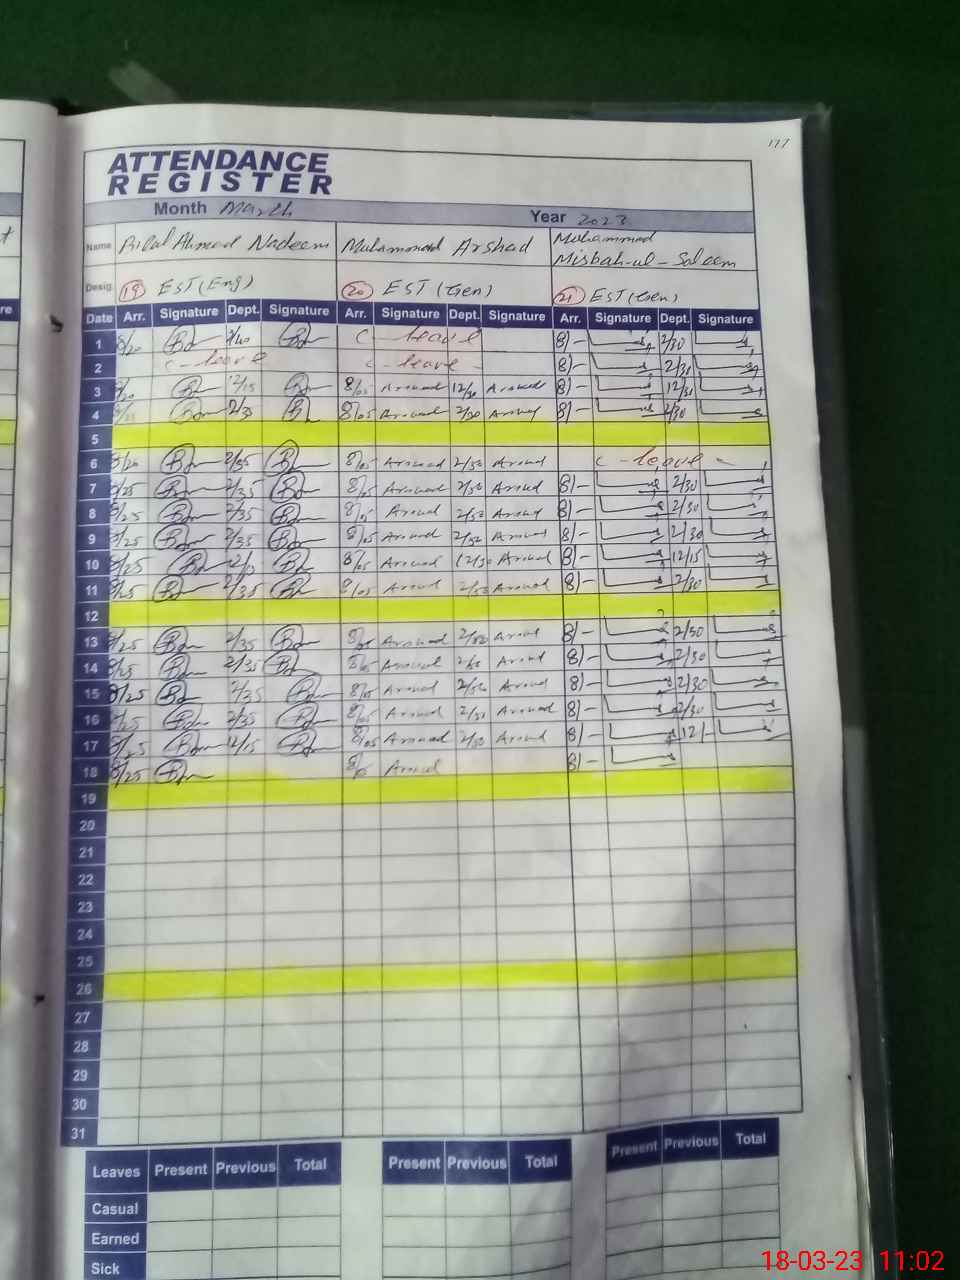 177
ATTENDANCE
REGISTER
Month March Year 2023
Name Bilal Ahmad Nadeem Muhammad Arshad Muhammad
Misbah-ul-Saleem
Desig. 19 EST (Eng) 20 EST (Gen) 21 EST (Gen)
Date Arr. Signature Dept. Signature Arr. Signature Dept. Signature Arr. Signature Dept. Signature
1 8/20 2/40 c leave 8/- 2/30
2 c - leave c - leave - 8/- 2/30
3 8/20 12/15 8/05 Arshad 12/30 Arshad 8/- 12/30
4 2/35 8/05 Arshad 2/30 Arshad 8/- 2/30
5
6 8/20 2/35 8/05 Arshad 2/30 Arshad c - leave -
7 8/25 2/35 8/05 Arshad 2/30 Arshad 8/- 2/30
8 8/25 2/35 8/05 Arshad 2/30 Arshad 8/- 2/30
9 8/25 2/35 8/05 Arshad 2/30 Arshad 8/- 2/30
10 8/25 8/05 Arshad 12/30 Arshad 8/- 12/15
11 8/25 2/35 8/05 Arshad 2/30 Arshad 8/- 2/30
12
13 8/25 2/35 8/05 Arshad 2/30 Arshad 8/- 2/30
14 8/25 2/35 8/05 Arshad 2/30 Arshad 8/- 2/30
15 8/25 2/35 8/05 Arshad 2/30 Arshad 8/- 2/30
16 8/25 2/35 8/05 Arshad 2/30 Arshad 8/- 2/30
17 8/25 12/15 8/05 Arshad 2/30 Arshad 8/- 12/-
18 8/25 8/05 Arshad 8/-
19
20
21
22
23
24
25
26
27
28
29
30
31
Leaves Present Previous Total Present Previous Total Present Previous Total
Casual
Earned
Sick
18-03-23 11:02